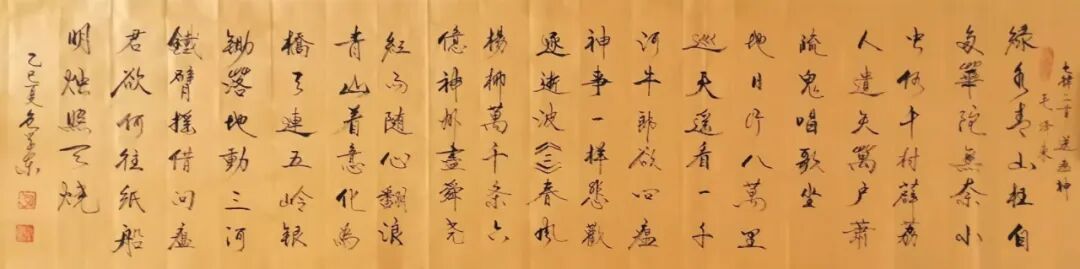 七律二首 送瘟神
毛泽东
綠水青山枉自
多華陀無奈小
虫何千村薜荔
人遺矢萬戶蕭
疏鬼唱歌坐
地日行八萬里
巡天遥看一千
河牛郎欲问瘟
神事一樣悲歡
逐逝波《二》春風
楊柳萬千条六
億神州盡舜尧
红雨随心翻浪
青山着意化為
橋天連五岭銀
鋤落地動三河
鐵臂摇借问瘟
君欲何往纸船
明烛照天烧
乙巳夏